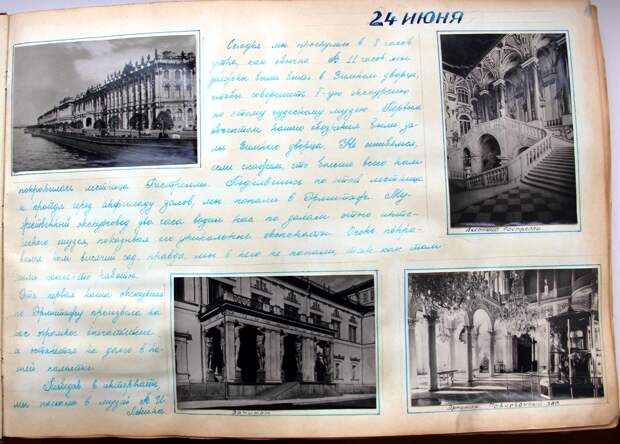 24 ИЮНЯ
Сегодня мы проснулись в 8 часов
утра, как обычно. К 11 часам мы
должны были быть в Зимнем дворце,
чтобы совершить 1-ую экскурсию
по этому чудесному музею. Первым
объектом нашего обозрения были за-
лы Зимнего дворца. Не ошибёмся,
если скажем, что больше всего нам
понравилась лестница Растрелли. Поднявшись по этой лестнице
и пройдя через анфиладу залов, мы попали в Эрмитаж.
экскурсовод два часа водил нас по залам этого
музея, показывая его уникальные экспонаты. Очень понра-
вился нам висячий сад, правда, мы в него не попали, так как там
шли какие-то работы.
Эта первая наша экскурсия
по Эрмитажу произвела на
нас впечатление
и останется на долго в на-
шей памяти.
Пообедав в интернате,
мы пошли в музей В. И.
Ленина.
Лестница Растрелли
Эрмитаж
Эрмитаж Павильонный зал